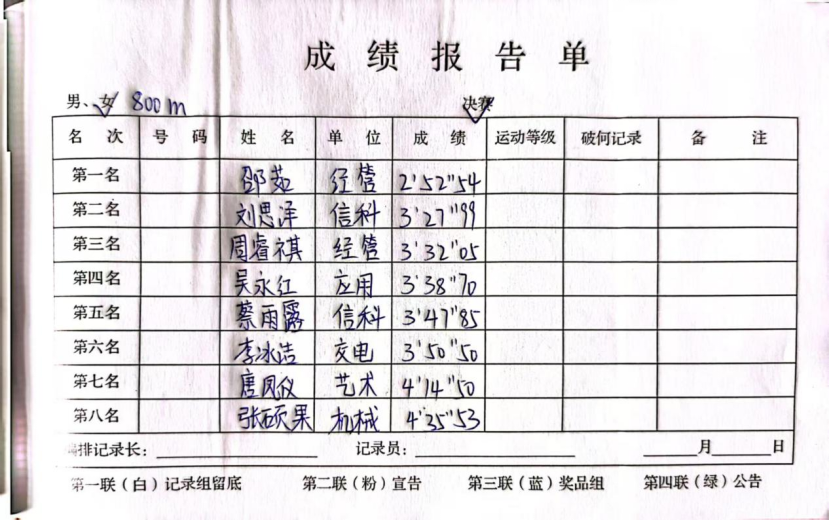 成绩报告单
男、女 800m 决赛
名次 号码 姓名 单位 成绩 运动等级 破何记录 备注
第一名 邵茹 经管 2'52"54
第二名 刘思泽 信科 3'27"99
第三名 周睿祺 经管 3'32"05
第四名 吴永红 应用 3'38"70
第五名 蔡雨露 信科 3'47"85
第六名 李冰洁 交电 3'50"50
第七名 唐凤仪 艺术 4'14"50
第八名 张硕果 机械 4'35"53
编排记录长: 记录员: 月 日
第一联(白)记录组留底 第二联(粉)宣告 第三联(蓝)奖品组 第四联(绿)公告